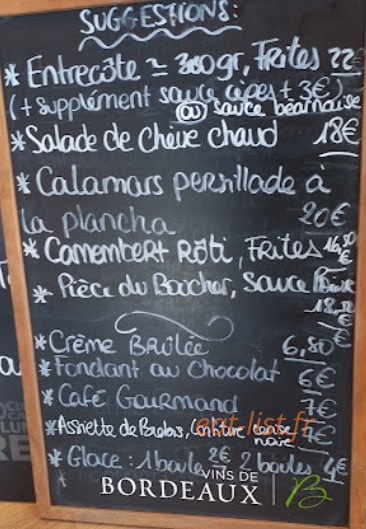 SUGGESTIONS:
* Entrecôte ≃ 300gr, Frites 22€
(+ Supplément sauce cèpes + 3€)
ou sauce béarnaise
* Salade de Chèvre chaud 18€
* Calamars persillade à
la plancha 20€
* Camembert Rôti, Frites 16,50€
* Pièce du Boucher, Sauce
18,50€
* Crème Brûlée 6,80€
* Fondant au Chocolat 6€
* Café Gourmand 7€
eat-list.fr
* Assiette de Brebis, Confiture cerise noire 7€
* Glace : 1 boule 2€ 2 boules 4€
*
VINS DE
BORDEAUX